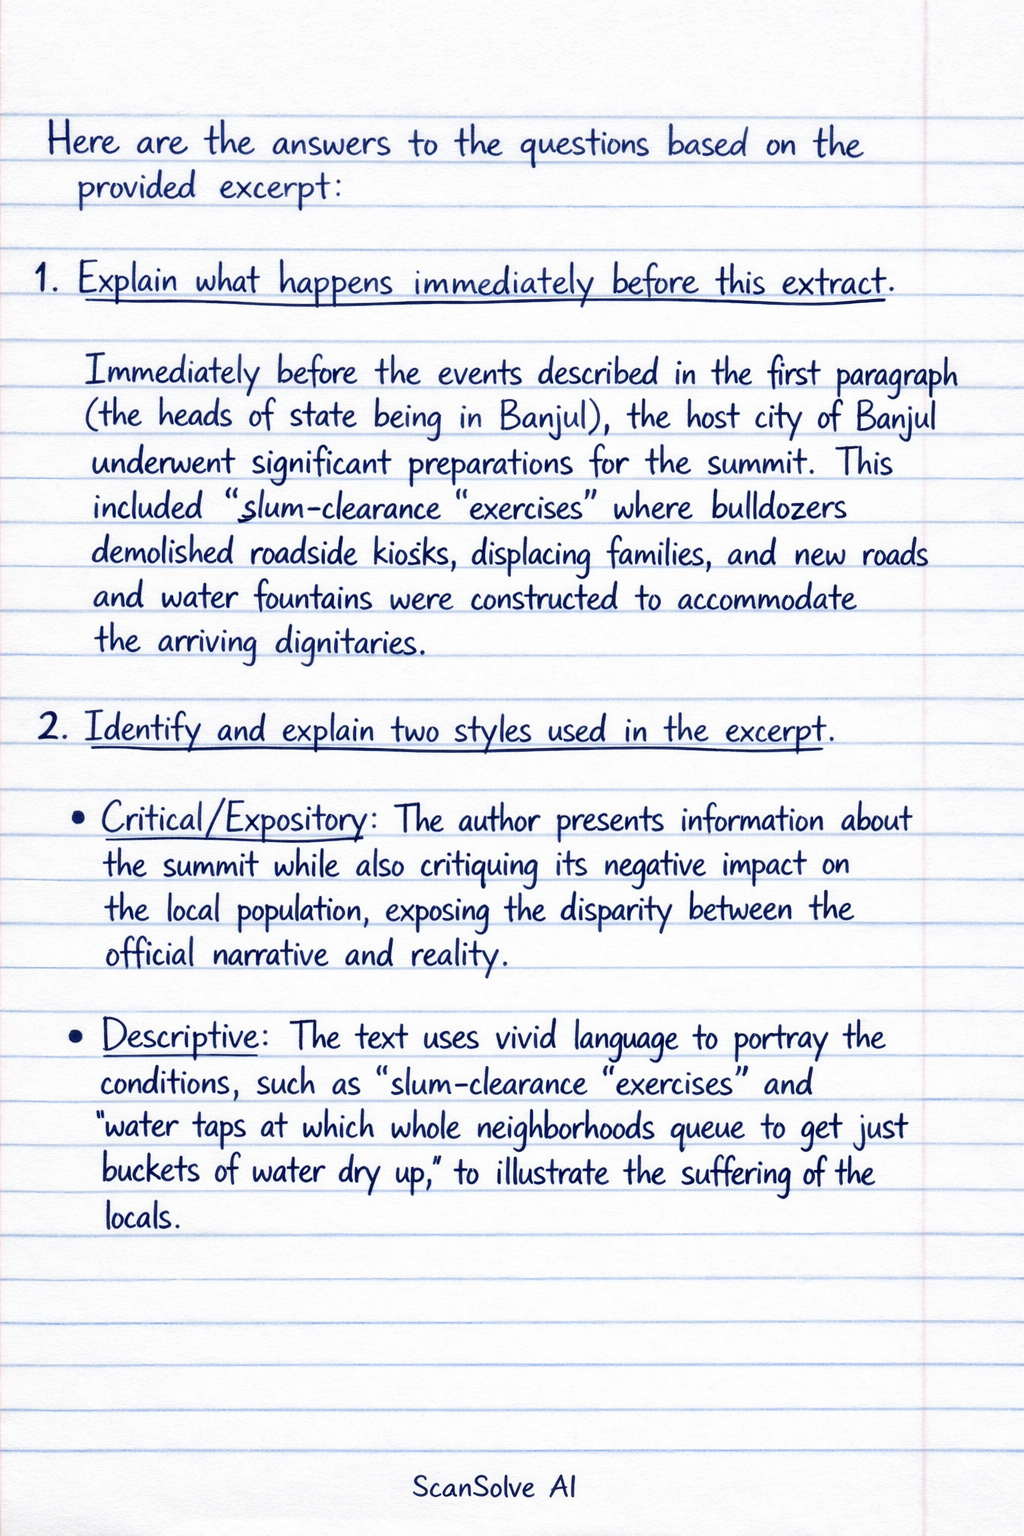 Here are the answers to the questions based on the
provided excerpt:
1. Explain what happens immediately before this extract.
Immediately before the events described in the first paragraph
(the heads of state being in Banjul), the host city of Banjul
underwent significant preparations for the summit. This
included "slum-clearance "exercises" where bulldozers
demolished roadside kiosks, displacing families, and new roads
and water fountains were constructed to accommodate
the arriving dignitaries.
2. Identify and explain two styles used in the excerpt.
• Critical/Expository: The author presents information about
the summit while also critiquing its negative impact on
the local population, exposing the disparity between the
official narrative and reality.
• Descriptive: The text uses vivid language to portray the
conditions, such as "slum-clearance "exercises" and
"water taps at which whole neighborhoods queue to get just
buckets of water dry up," to illustrate the suffering of the
locals.
ScanSolve AI